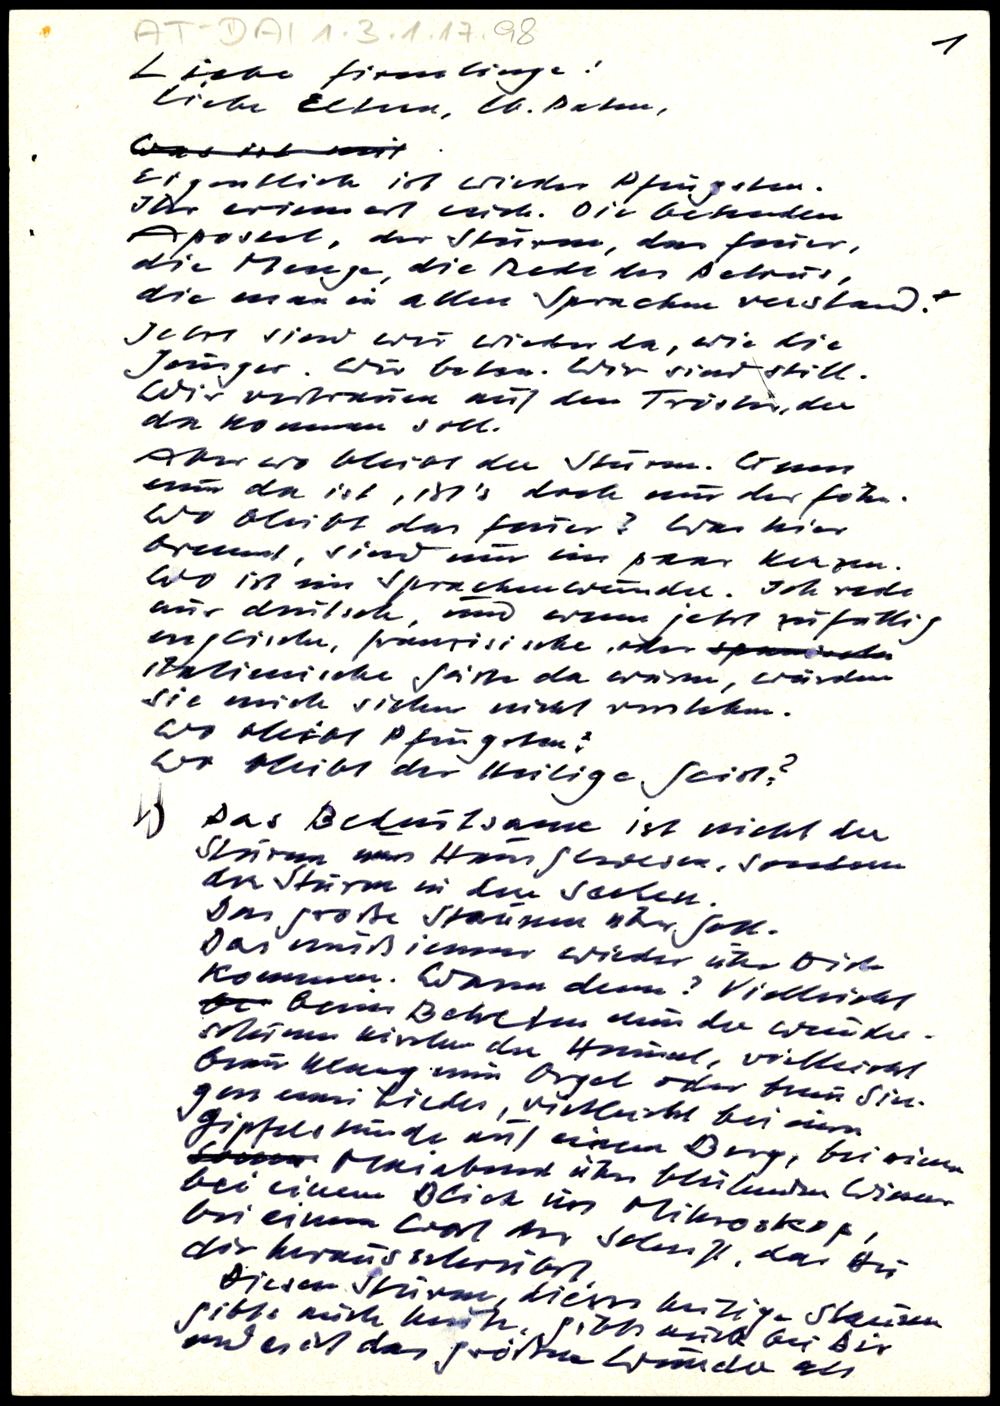 AT-DAI 1.3.1.17.98
1
Liebe Firmlinge!
Liebe Eltern, lb. Paten,
Was ist mit
Eigentlich ist wieder Pfingsten.
Ihr erinnert euch. Die betenden
Apostel, der Sturm, das Feuer,
die Menge, die Rede des Petrus,
die man in allen Sprachen verstand.
Jetzt sind wir wieder da, wie die
Jünger. Wir beten. Wir sind still.
Wir vertrauen auf den Tröster, der
da kommen soll.
Aber wo bleibt der Sturm. Wenn
einer da ist, ist's doch nur der Föhn.
Wo bleibt das Feuer? Was hier
brennt, sind nur ein paar Kerzen.
Wo ist ein Sprachenwunder. Ich rede
nur deutsch, und wenn jetzt zufällig
englische, französische oder spanische
italienische Gäste da wären, würden
sie mich sicher nicht verstehen.
Wo bleibt Pfingsten?
Wo bleibt der Heilige Geist?
1) Das Bedeutsame ist nicht der
Sturm ums Haus gewesen, sondern
der Sturm in den Seelen.
Das große Staunen über Gott.
Das muß immer wieder über Dich
kommen. Wann denn? Vielleicht
be beim Betreten einer der wunder-
schönen Kirchen der Heimat, vielleicht
beim Klang einer Orgel oder beim Sin-
gen eines Liedes, vielleicht bei einer
Gipfelstunde auf einem Berg, bei einem
Maiabend über blühenden Wiesen
bei einem Blick ins Mikroskop,
bei einem Wort der Schrift, das Du
dir herausschreibst.
Diesen Sturm, dieses heilige Staunen
gibts auch heute, gibts auch bei Dir
und es ist das größere Wunder als